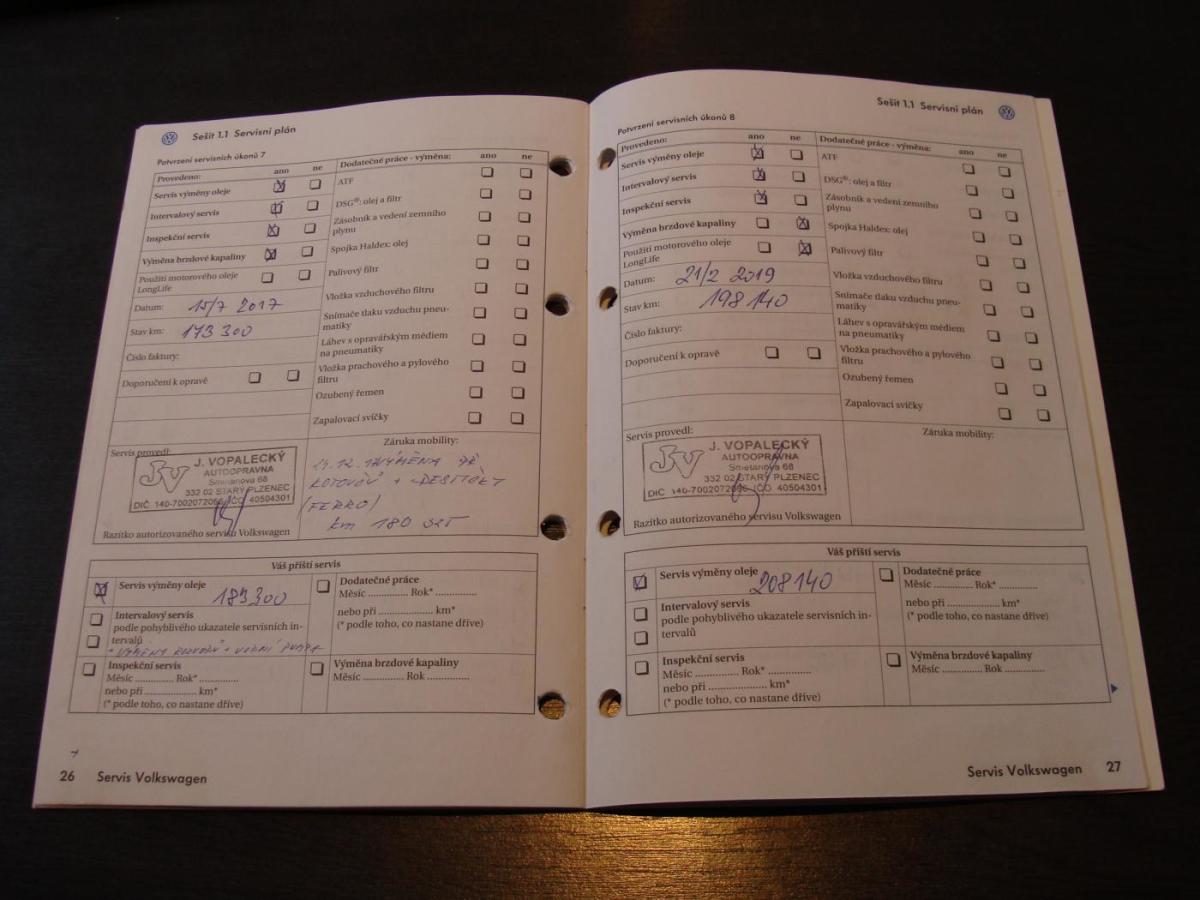 Sešit 1.1 Servisní plán
Potvrzení servisních úkonů 7
Provedeno: ano ne
Servis výměny oleje
Intervalový servis
Inspekční servis
Výměna brzdové kapaliny
Použití motorového oleje
LongLife
Datum: 15/7 2017
Stav km: 173 300
Číslo faktury:
Doporučení k opravě
Dodatečné práce - výměna: ano ne
ATF
DSG®: olej a filtr
Zásobník a vedení zemního
plynu
Spojka Haldex: olej
Palivový filtr
Vložka vzduchového filtru
Snímače tlaku vzduchu pneu-
matiky
Láhev s opravářským médiem
na pneumatiky
Vložka prachového a pylového
filtru
Ozubený řemen
Zapalovací svíčky
Servis provedl:
J. VOPALECKÝ
AUTOOPRAVNA
Smetanova 68
332 02 STARÝ PLZENEC
DIČ 140-7002072066, IČO 40504301
Razítko autorizovaného servisu Volkswagen
Záruka mobility:
VÝMĚNA PŘ
KOTOUČŮ + DESTIČKY
(FERRO)
km 180
Váš příští servis
Servis výměny oleje 183300
Intervalový servis
podle pohyblivého ukazatele servisních in-
tervalů
* VÝMĚNY ROZVODŮ + VODNÍ PUMPA
Inspekční servis
Měsíc .............. Rok* ..............
nebo při .................. km*
(* podle toho, co nastane dříve)
Dodatečné práce
Měsíc .............. Rok* ..............
nebo při .................. km*
(* podle toho, co nastane dříve)
Výměna brzdové kapaliny
Měsíc .............. Rok ..............
26 Servis Volkswagen
Sešit 1.1 Servisní plán
Potvrzení servisních úkonů 8
Provedeno: ano ne
Servis výměny oleje
Intervalový servis
Inspekční servis
Výměna brzdové kapaliny
Použití motorového oleje
LongLife
Datum: 21/2 2019
Stav km: 198 140
Číslo faktury:
Doporučení k opravě
Dodatečné práce - výměna: ano ne
ATF
DSG®: olej a filtr
Zásobník a vedení zemního
plynu
Spojka Haldex: olej
Palivový filtr
Vložka vzduchového filtru
Snímače tlaku vzduchu pneu-
matiky
Láhev s opravářským médiem
na pneumatiky
Vložka prachového a pylového
filtru
Ozubený řemen
Zapalovací svíčky
Servis provedl:
J. VOPALECKÝ
AUTOOPRAVNA
Smetanova 68
332 02 STARÝ PLZENEC
DIČ 140-7002072066, IČO 40504301
Razítko autorizovaného servisu Volkswagen
Záruka mobility:
Váš příští servis
Servis výměny oleje 208140
Intervalový servis
podle pohyblivého ukazatele servisních in-
tervalů
Inspekční servis
Měsíc .............. Rok* ..............
nebo při .................. km*
(* podle toho, co nastane dříve)
Dodatečné práce
Měsíc .............. Rok* ..............
nebo při .................. km*
(* podle toho, co nastane dříve)
Výměna brzdové kapaliny
Měsíc .............. Rok ..............
Servis Volkswagen 27